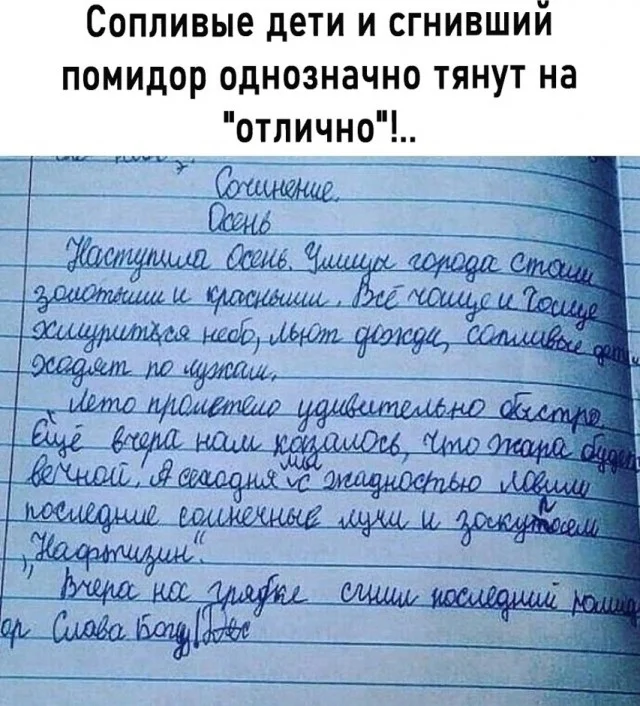 Сопливые дети и сгнивший
помидор однозначно тянут на
"отлично"!..
Сочинение.
Осень
Наступила Осень. Улицы города стали
золотыми и красными. Всё чаще и Чаще
хмуриться небо, льют дожди, сопливые дети
ходят по лужам.
Лето пролетело удивительно быстро.
Ещё вчера нам казалось, что жара будет
вечной, А сегодня мы с жадностью ловим
последние солнечные лучи и
"Нафтизин".
Вчера на грядке сгнил последний помид
ор Слава Богу!